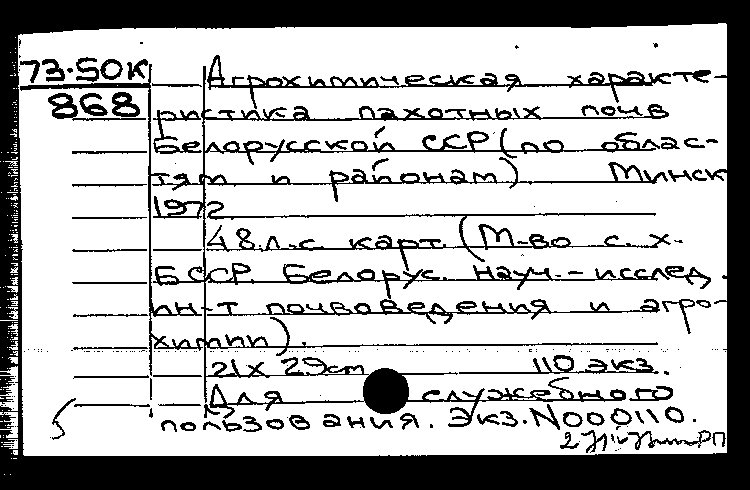 73-50К
868
Агрохимическая характе-
ристика пахотных почв
Белорусской ССР (по облас-
тям и районам). Минск
1972.
48.л.с карт. (М-во с. х.
БССР. Белорус. науч.-исслед.
ин-т почвоведения и агро-
химии).
21х 29cm 110 экз.
Для служебного
пользования. Экз.N000110.